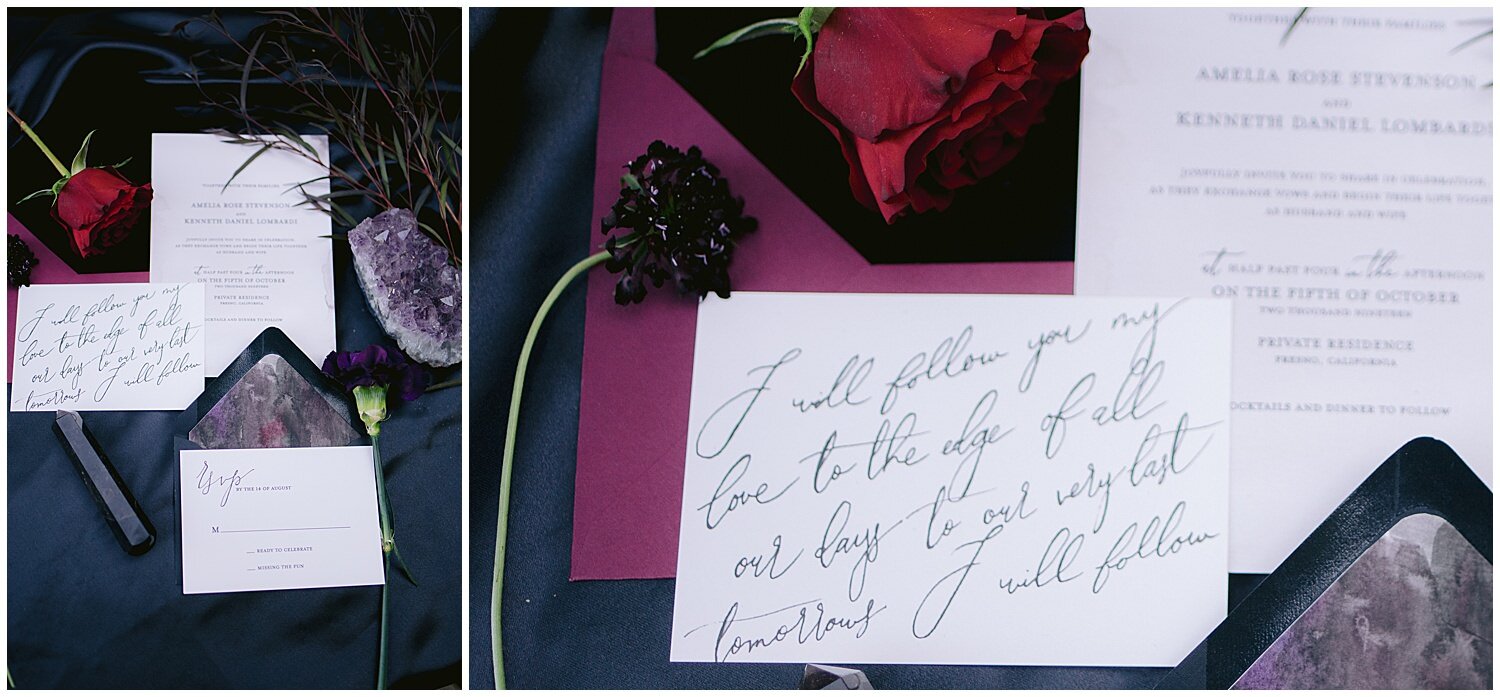 TOGETHER WITH THEIR FAMILIES
AMELIA ROSE STEVENSON
AND
KENNETH DANIEL LOMBARDI
JOYFULLY INVITE YOU TO SHARE IN CELEBRATION,
AS THEY EXCHANGE VOWS AND BEGIN THEIR LIFE TOGETHER
AS HUSBAND AND WIFE
at HALF PAST FOUR in the AFTERNOON
ON THE FIFTH OF OCTOBER
TWO THOUSAND NINETEEN
PRIVATE RESIDENCE
FRESNO, CALIFORNIA
COCKTAILS AND DINNER TO FOLLOW
I will follow you my
love to the edge of all
our days to our very last
tomorrows I will follow
rsvp BY THE 14 OF AUGUST
M
READY TO CELEBRATE
MISSING THE FUN
TOGETHER WITH THEIR FAMILIES
AMELIA ROSE STEVENSON
AND
KENNETH DANIEL LOMBARDI
JOYFULLY INVITE YOU TO SHARE IN CELEBRATION,
AS THEY EXCHANGE VOWS AND BEGIN THEIR LIFE TOGET
AS HUSBAND AND WIFE
at HALF PAST FOUR in the AFTERNOON
ON THE FIFTH OF OCTOBER
TWO THOUSAND NINETEEN
PRIVATE RESIDENCE
FRESNO, CALIFORNIA
OCKTAILS AND DINNER TO FOLLOW
I will follow you my
love to the edge of all
our days to our very last
tomorrows I will follow